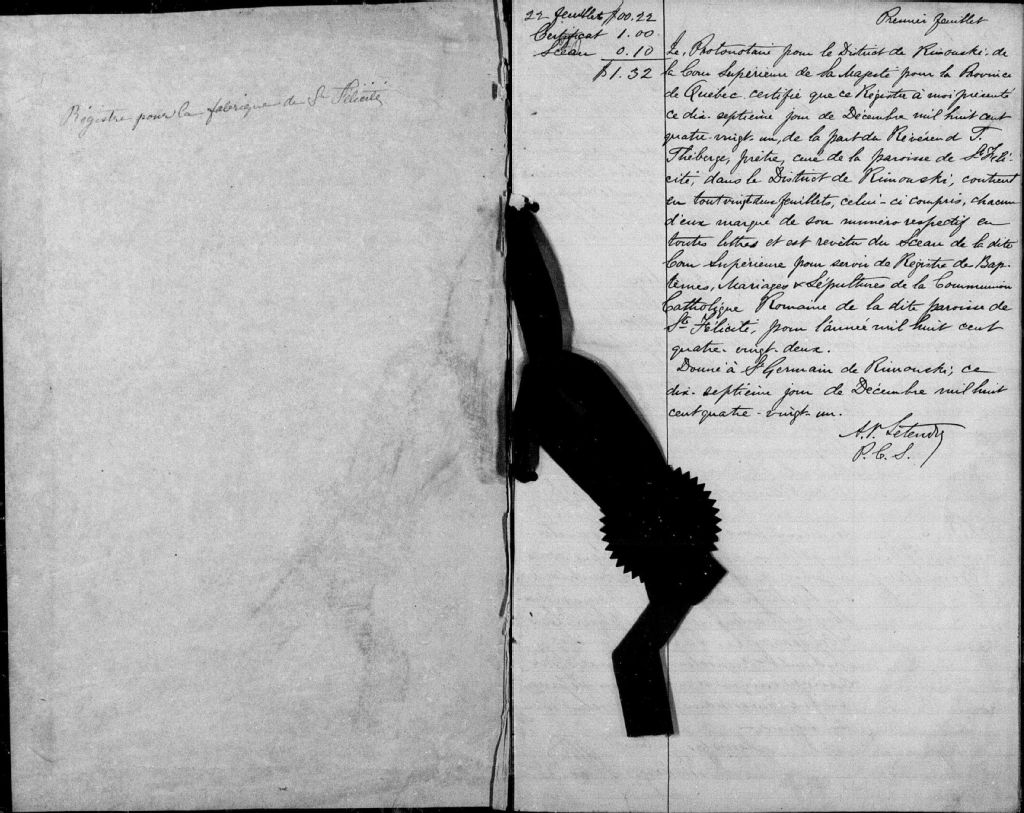 Régistre pour la fabrique de Ste Félicité
22 feuillets $00.22
Certificat 1.00
Sceau 0.10
$1.32
Premier feuillet
Le Protonotaire pour le District de Rimouski de
la Cour Supérieure de Sa Majesté pour la Province
de Québec certifie que ce Régistre à moi présenté
ce dix-septième jour de Décembre mil huit cent
quatre-vingt-un, de la part du Révérend T.
Théberge, prêtre, curé de la paroisse de Ste Féli-
cité, dans le District de Rimouski, contient
en tout vingt deux feuillets, celui-ci compris, chacun
d'eux marqué de son numéro respectif en
toutes lettres et est revêtu du Sceau de la dite
Cour Supérieure pour servir de Régistre de Bap-
têmes, Mariages & Sépultures de la Communion
Catholique Romaine de la dite paroisse de
Ste Félicité, pour l'année mil huit cent
quatre-vingt-deux.
Donné à St Germain de Rimouski, ce
dix-septième jour de Décembre mil huit
cent quatre-vingt-un.
A.P. Letendre
P.C.S.